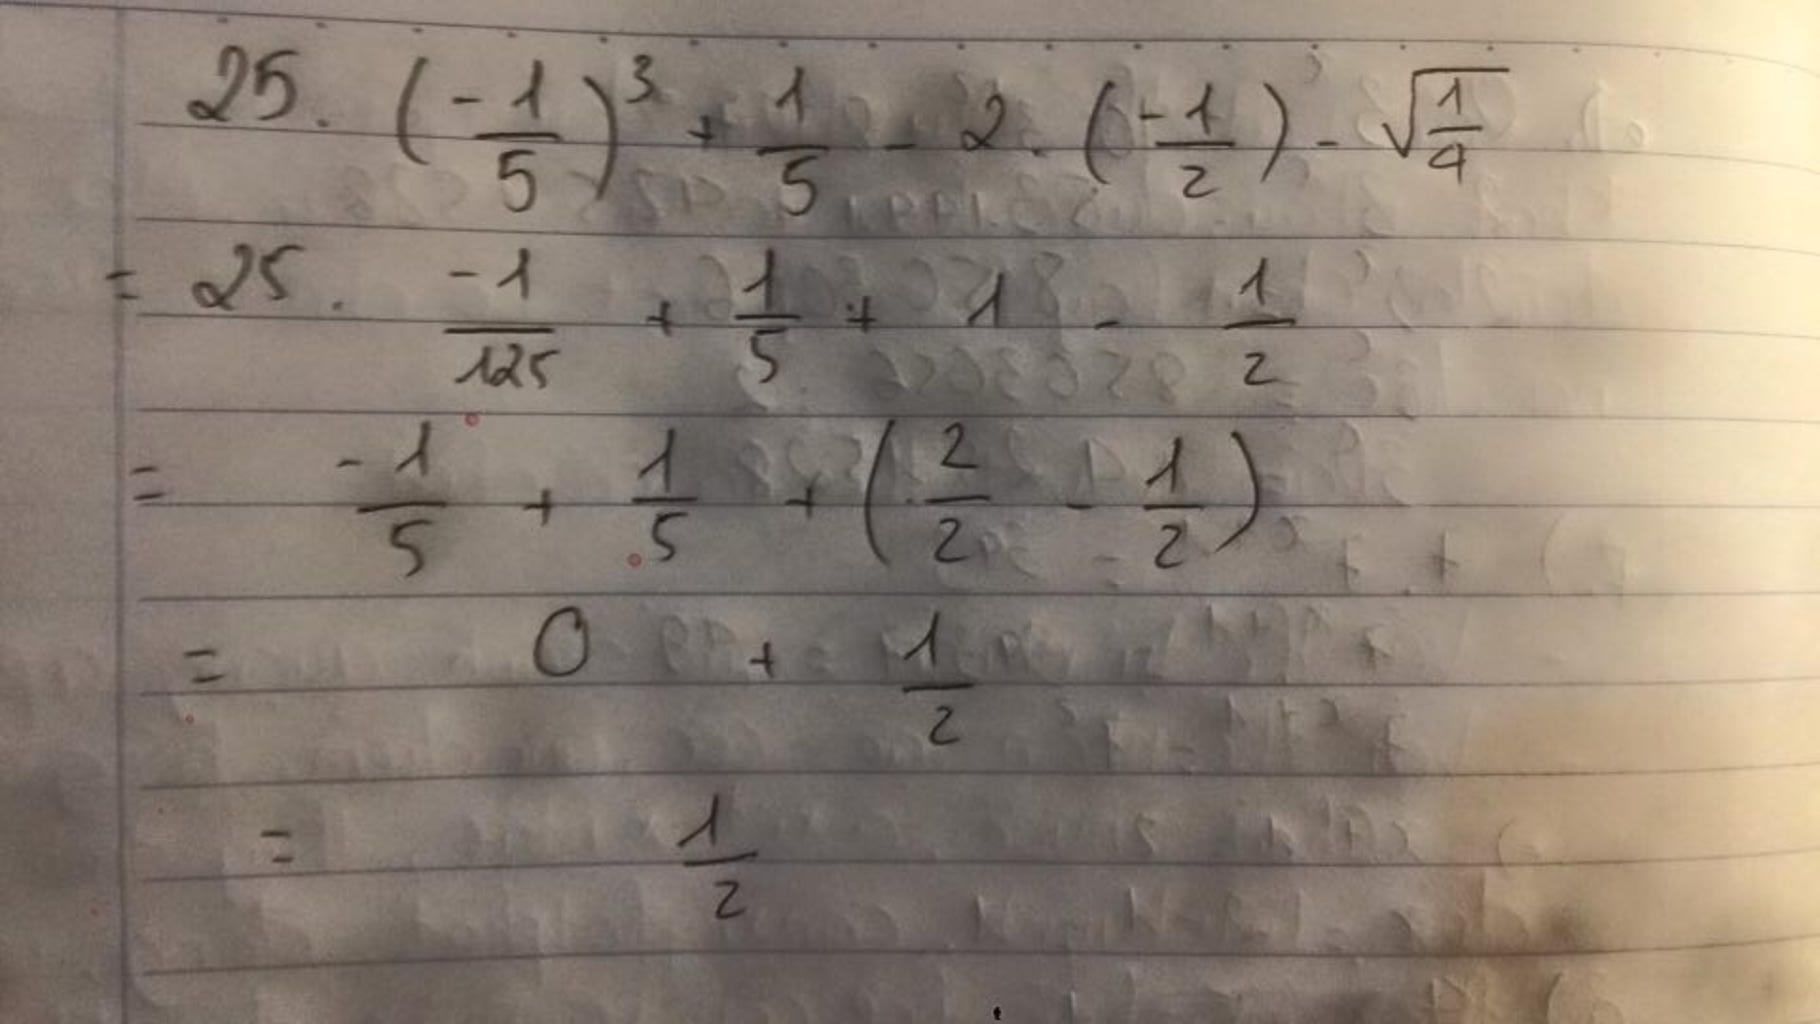 25. (-1/5)³ + 1/5 - 2. (-1/2) - √(1/4)
= 25. -1/125 + 1/5 + 1 - 1/2
= -1/5 + 1/5 + (2/2 - 1/2)
= 0 + 1/2
= 1/2